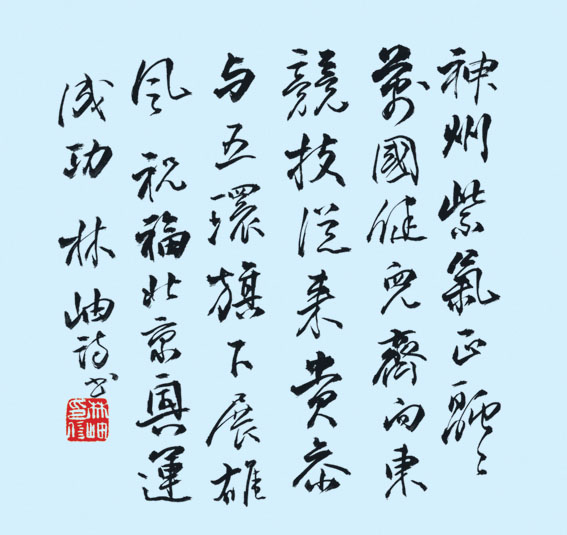 神州紫氣正融々
萬國健兒齊向東
競技從來貴參
与五環旗下展雄
風 祝福北京奧運
成功 林岫詩書
林岫